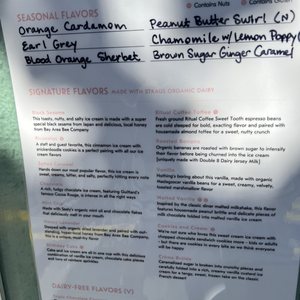 Contains Nuts Contains Gluten
SEASONAL FLAVORS
Orange Cardamom
Earl Grey
Blood Orange Sherbet
Peanut Butter Swirl (N)
Chamomile w/ Lemon Poppy
Brown Sugar Ginger Caramel
SIGNATURE FLAVORS MADE WITH STRAUS ORGANIC DAIRY
Black Sesame
This toasty, nutty, and salty ice cream is made with a super
special black sesame from Japan and delicious, local honey
from Bay Area Bee Company
A staff and guest favorite, this cinnamon ice cream with
snickerdoodle cookies is a perfect pairing with all our ice
cream flavors.
Salted Caramel
Hands down our most popular flavor, this ice cream is
sweet, creamy, bitter, and salty, perfectly hitting every note
A rich, fudgy chocolate ice cream, featuring Guittard's
famous Cocoa Rouge, is intense in all the right ways
Made with
that delicately melt in your mouth
Deeped with organic dried lavender and paired with our
Bay Area Bee Company,
this is a unique must-try flavor
Birthday Cake
Cake and ice cream are all in one cup with this delicious
combination of vanilla ice cream, chocolate cake pieces,
and tons of rainbow sprinkles
Ritual Coffee Toffee
Fresh ground Ritual Coffee Sweet Tooth espresso beans
are cold steeped for bold, exacting flavor and paired with
housemade almond toffee for a sweet, nutty crunch
Roasted Banana
Organic bananas are roasted with brown sugar to intensify
their flavor before being churned into the ice cream
(uniquely made with Double 8 Dairy Jersey Milk)
Vanilla
Nothing's boring about this vanilla, made with organic
madagascar vanilla beans for a sweet, creamy, velvety,
toasted marshmallow flavor
Malted Vanilla
Inspired by the classic diner malted milkshake, this flavor
features housemade peanut brittle and delicate pieces of
milk chocolate folded into malted vanilla ice cream
Cookies and Cream
We're not sure who loves this sweet cream ice cream with
chopped chocolate sandwich cookies more - kids or adults
- but these cookies in every bite so we think everyone
will be happy
Creme Brulee
Caramelized sugar is broken into
carefully folded into a rich, creamy vanilla custard ice
cream for a tangy, sweet, bitter take on the classic
French dessert
DAIRY-FREE FLAVORS (V)